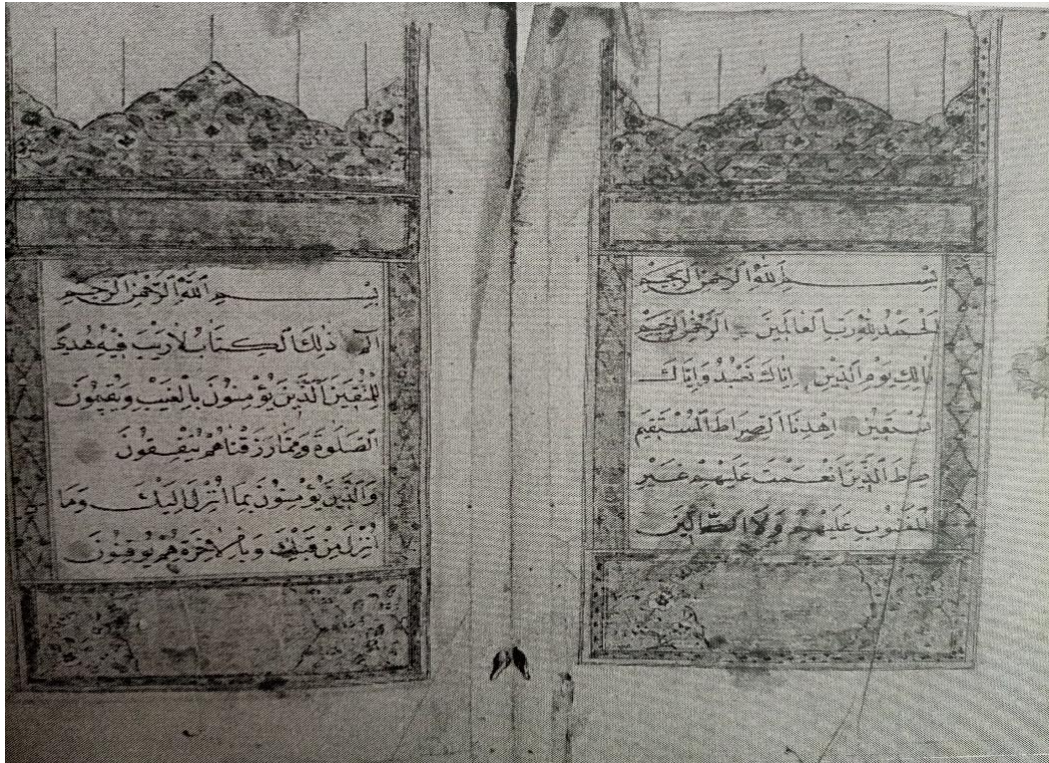 بِسْــــــمِ اللَّهِ الرَّحْمٰنِ الرَّحِيمِ
اَلْحَمْدُ لِلّٰهِ رَبِّ الْعَالَمِينَ الرَّحْمٰنِ الرَّحِيمِ
مَالِكِ يَوْمِ الدِّينِ اِيَّاكَ نَعْبُدُ وَاِيَّاكَ
نَسْتَعِينُ اِهْدِنَا الصِّرَاطَ الْمُسْتَقِيمَ
صِرَاطَ الَّذِينَ اَنْعَمْتَ عَلَيْهِمْ غَيْرِ
الْمَغْضُوبِ عَلَيْهِمْ وَلَا الضَّالِّينَ
بِسْــــــمِ اللَّهِ الرَّحْمٰنِ الرَّحِيمِ
الٓمٓ ذٰلِكَ الْكِتَابُ لَا رَيْبَ فِيْهِ هُدًى
لِلْمُتَّقِينَ الَّذِينَ يُؤْمِنُونَ بِالْغَيْبِ وَيُقِيمُونَ
الصَّلٰوةَ وَمِمَّا رَزَقْنَاهُمْ يُنْفِقُونَ
وَالَّذِينَ يُؤْمِنُونَ بِمَا اُنْزِلَ اِلَيْكَ وَمَا
اُنْزِلَ مِنْ قَبْلِكَ وَبِالْاٰخِرَةِ هُمْ يُوقِنُونَ